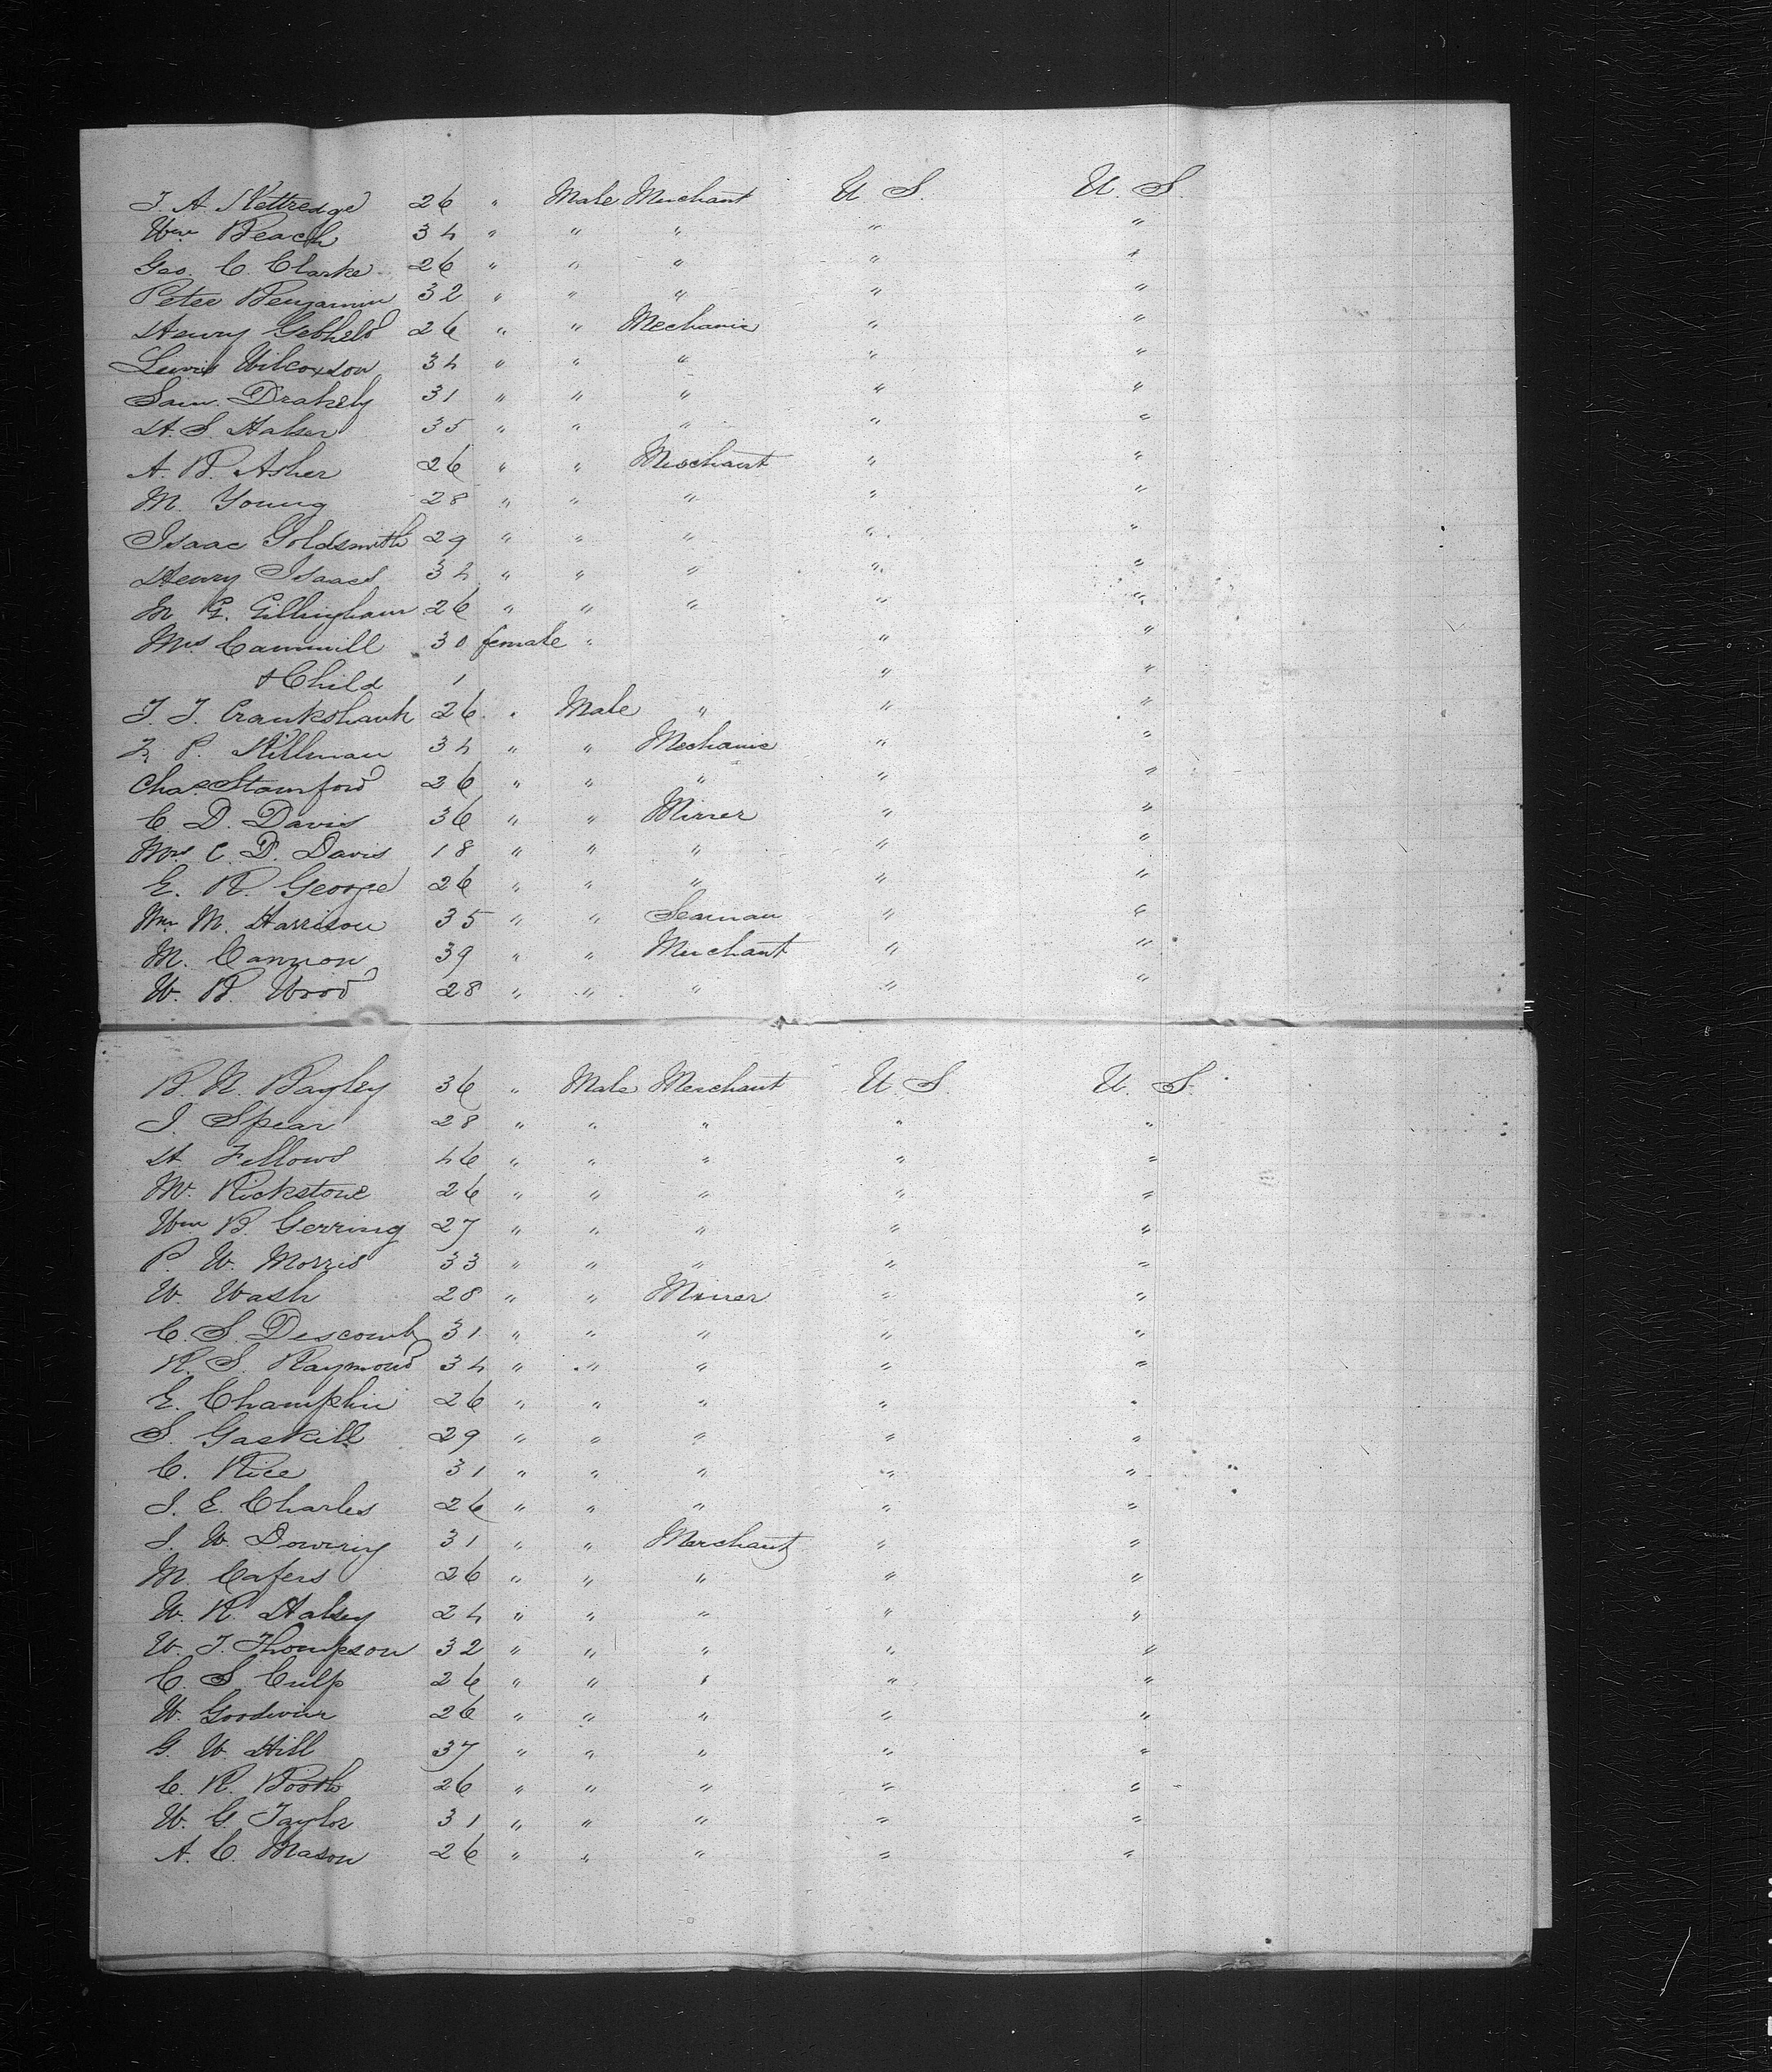 J. A. Kettredge 26 " Male Merchant U S. U. S.
Wm Beach 34 " " " " "
Geo. C. Clarke 26 " " " " "
Peter Benjamin 32 " " " " "
Henry Gebheld 26 " " Mechanic " "
Lewis Wilcoxson 34 " " " " "
Sam. Drakely 31 " " " " "
H. S. Halser 35 " " " " "
A. B. Asher 26 " " Merchant " "
M. Young 28 " " " " "
Isaac Goldsmith 29 " " " " "
Henry Isaacs 34 " " " " "
M G. Gillingham 26 " " " " "
Mrs Cammill 30 female " " "
& Child 1 " "
J. J. Crankshank 26 " Male " " "
P. Killman 34 " " Mechanic " "
Chas Stamford 26 " " " " "
C. D. Davis 36 " " Miner " "
Mrs C. D. Davis 18 " " " " "
E. R. George 26 " " " " "
Wm M. Harrison 35 " " Seaman " "
M. Cannon 39 " " Merchant " "
W. B. Wood 28 " " " " "
B. N. Bagley 36 " Male Merchant U S. U. S.
J. Spear 28 " " " " "
H Fellows 46 " " " " "
M. Rickstone 26 " " " " "
Wm B. Gerring 27 " " " " "
P. W. Morris 33 " " " " "
W. Wash 28 " " Miner " "
C. S. Descomb 31 " " " " "
R. S. Raymond 34 " " " " "
E. Champlin 26 " " " " "
S. Gaskill 29 " " " " "
C. Rice 31 " " " " "
J. E. Charles 26 " " " " "
J. W. Dowring 31 " " Merchant " "
M. Cafers 26 " " " " "
W. R. Halsey 24 " " " " "
W. T. Thompson 32 " " " " "
C. S. Culp 26 " " " " "
W. Goodwin 26 " " " " "
G. W. Hill 37 " " " " "
C. R. Booth 26 " " " " "
W. G. Taylor 31 " " " " "
A. C. Mason 26 " " " " "